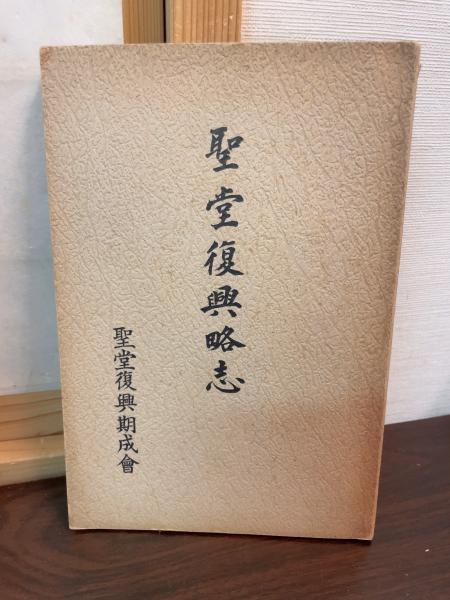 聖堂復興略志
聖堂復興期成會